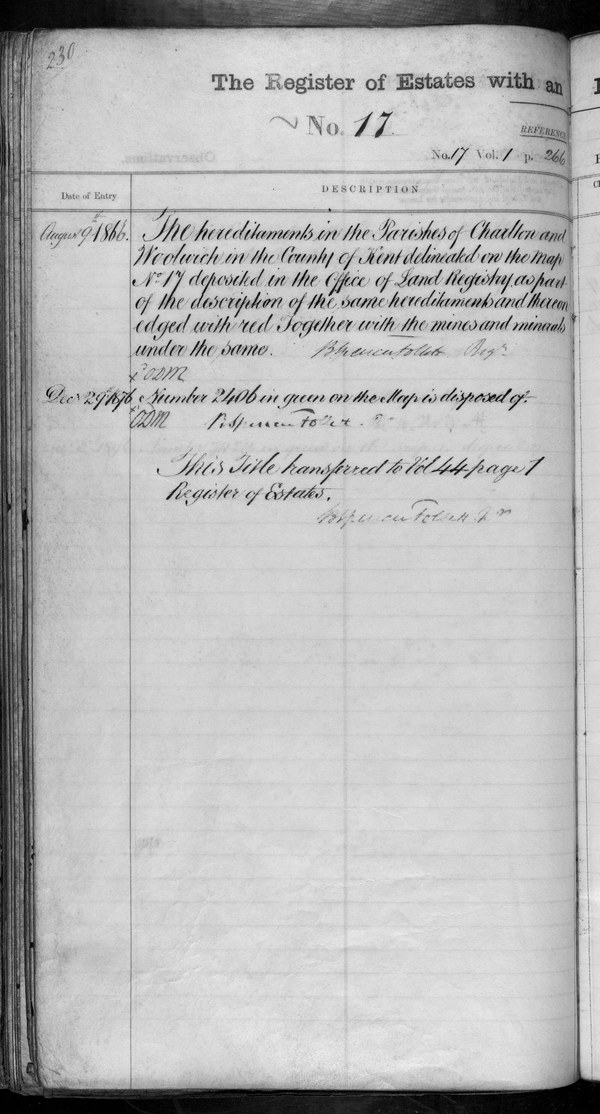 230
The Register of Estates with an
No. 17.
REFERENCE
No. 17 Vol. 1 p. 266
Date of Entry
DESCRIPTION
August 9th 1866.
The hereditaments in the Parishes of Charlton and
Woolwich in the County of Kent delineated on the Map
No 17 deposited in the Office of Land Registry, as part
of the description of the same hereditaments and thereon
edged with red Together with the mines and minerals
under the same. Brent Spencer Follett Regr
ODM
Decr 29th 1876
Number 2406 in green on the Map is disposed of.
ODM
Spencer Follett
This Title transferred to Vol 44 page 1
Register of Estates.
Spencer Follett